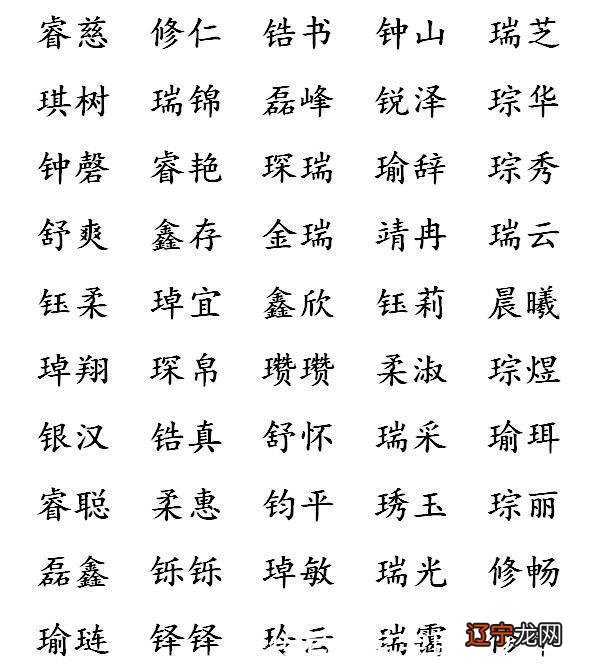 睿慈 修仁 锆书 钟山 瑞芝
琪树 瑞锦 磊峰 锐泽 琮华
钟磬 睿艳 琛瑞 瑜辞 琮秀
舒爽 鑫存 金瑞 靖冉 瑞云
钰柔 琸宜 鑫欣 钰莉 晨曦
琸翔 琛帛 瓒瓒 柔淑 琮煜
银汉 锆真 舒怀 瑞采 瑜珥
睿聪 柔惠 钧平 琇玉 琮丽
磊鑫 铄铄 琸敏 瑞光 修畅
瑜琏 铎铎 玲云 瑞霭 修
辽宁龙网